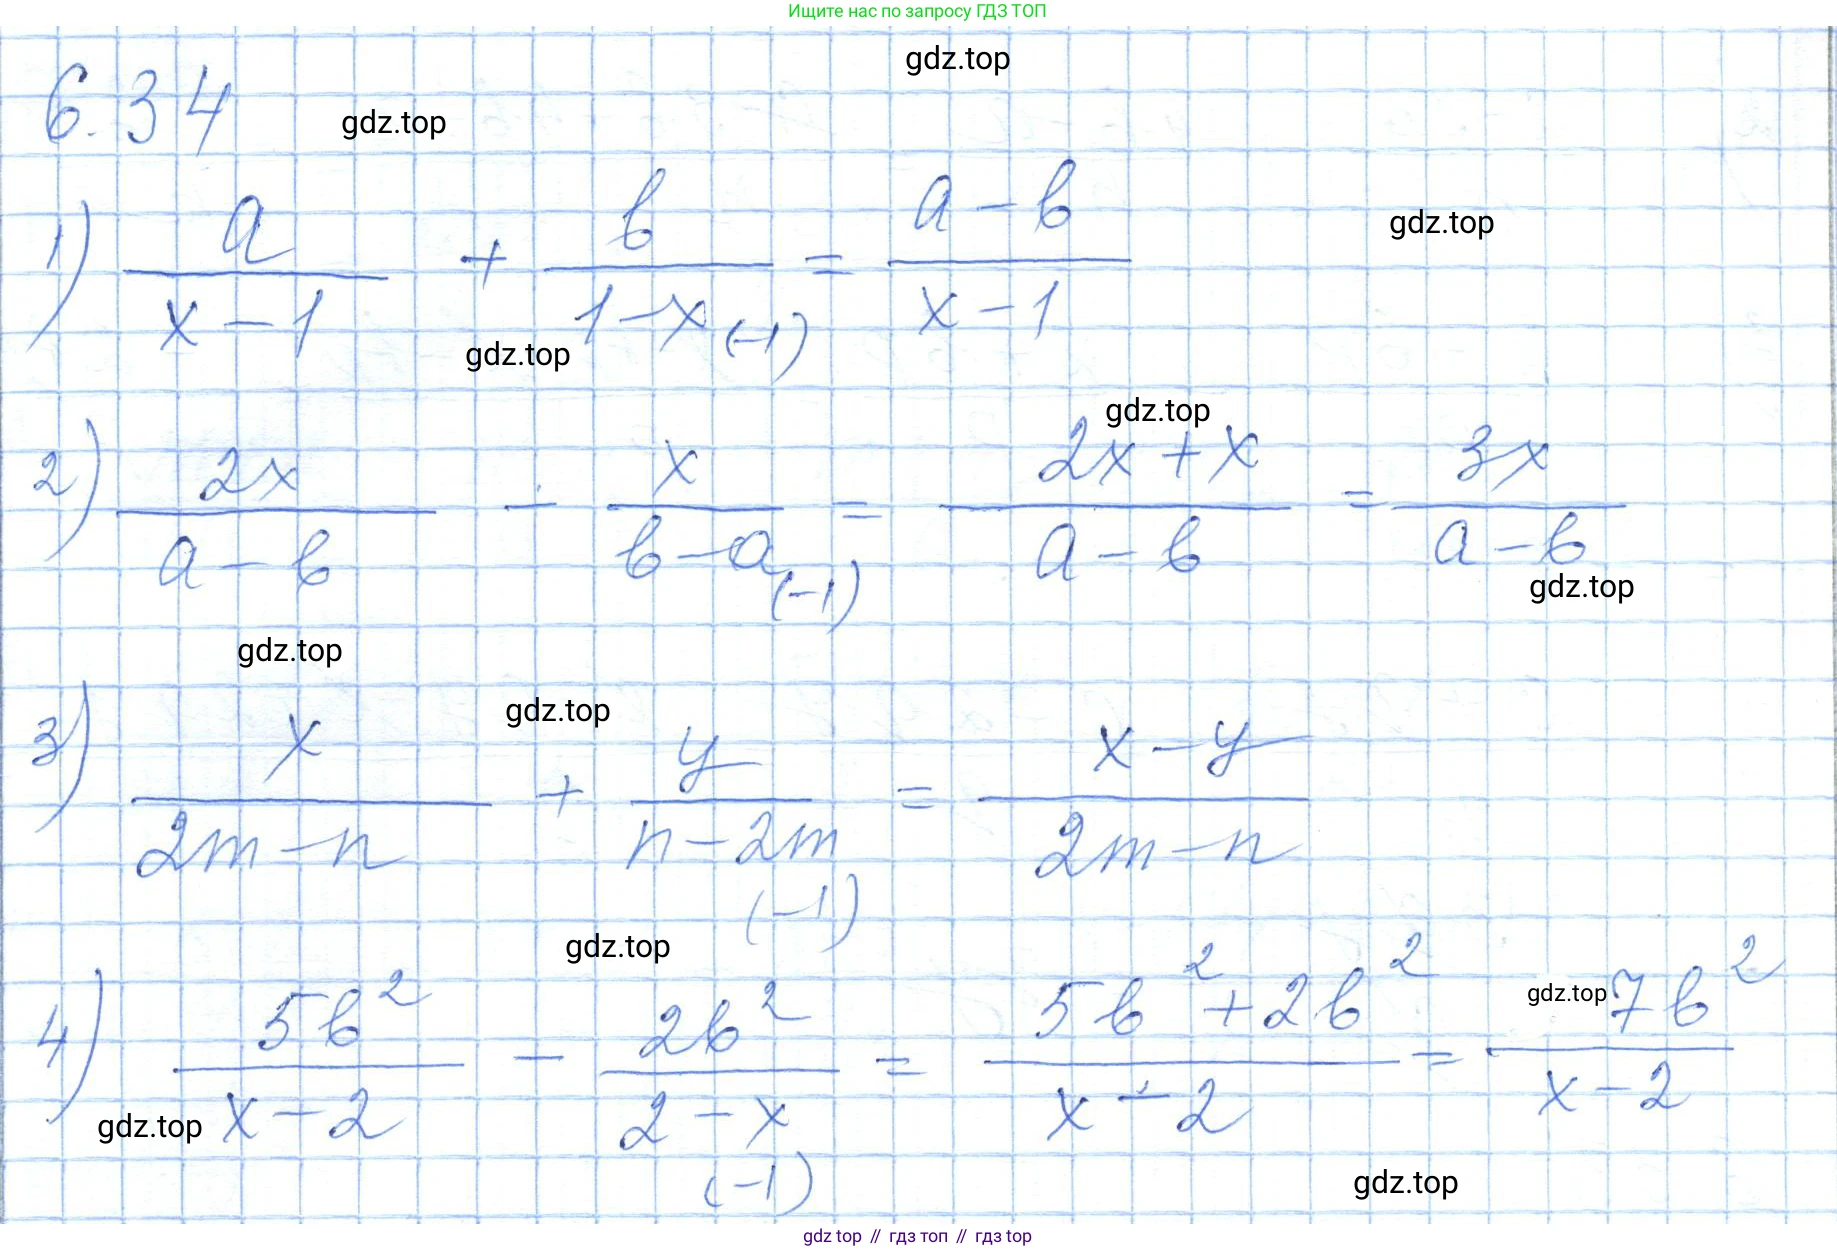 Ищите нас по запросу ГДЗ ТОП
gdz.top
6.34
gdz.top
1) a/(x-1) + b/(1-x) (-1) = (a-b)/(x-1)
gdz.top
gdz.top
gdz.top
2) 2x/(a-b) - x/(b-a) (-1) = (2x+x)/(a-b) = 3x/(a-b)
gdz.top
gdz.top
gdz.top
3) x/(2m-n) + y/(n-2m) (-1) = (x-y)/(2m-n)
gdz.top
gdz.top
4) 5b²/(x-2) - 2b²/(2-x) (-1) = (5b²+2b²)/(x-2) = 7b²/(x-2)
gdz.top
gdz.top
gdz top // гдз топ // gdz top